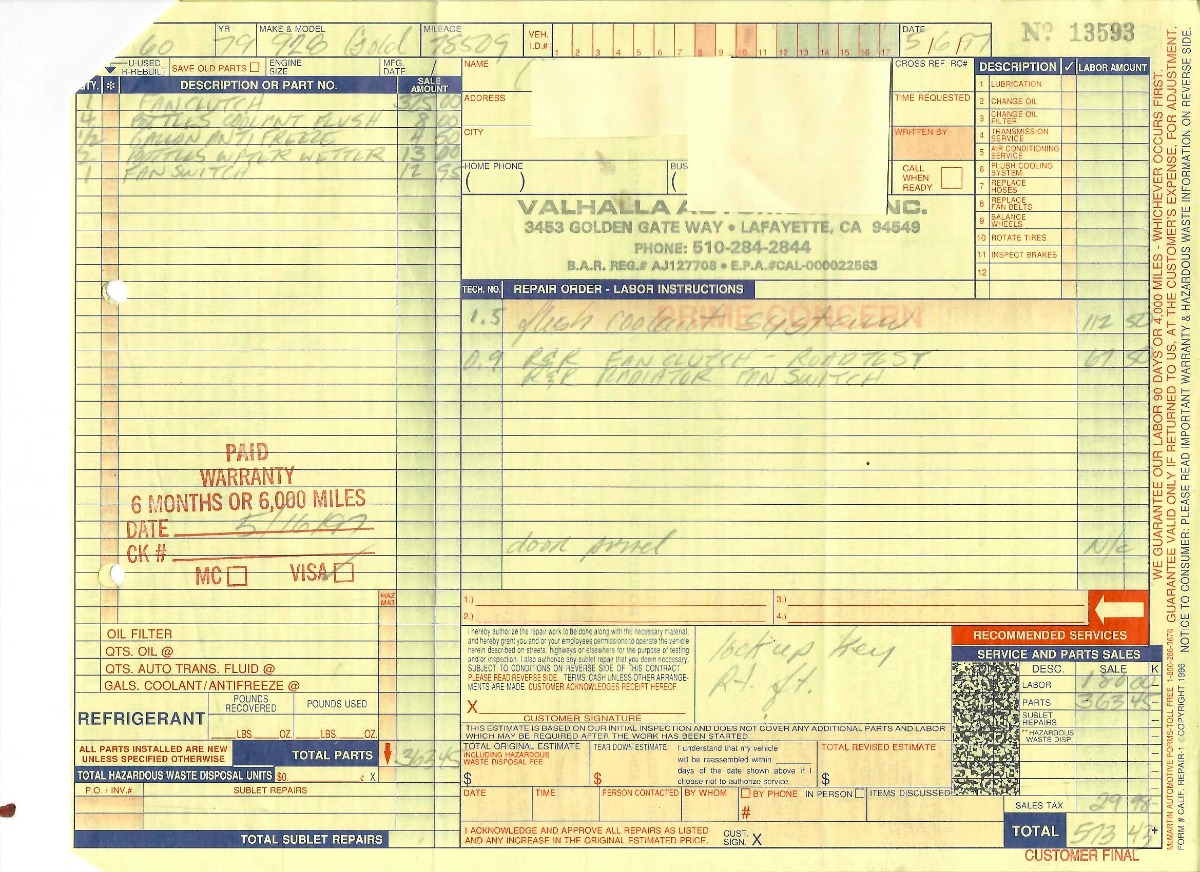 YR
MAKE & MODEL
MILEAGE
VEH. I.D.#
1 2 3 4 5 6 7 8 9 10 11 12 13 14 15 16 17
DATE
Nº 13593
60 79 928 Gold 78509
U-USED
R-REBUILT
SAVE OLD PARTS
ENGINE SIZE
MFG. DATE
QTY. * DESCRIPTION OR PART NO. SALE AMOUNT
1 FAN CLUTCH 325 00
4 BOTTLES COOLANT FLUSH 8 00
1/2 GALLON ANTI FREEZE 4 50
2 BOTTLES WATER WETTER 13 00
1 FAN SWITCH 12 95
NAME
ADDRESS
CITY
HOME PHONE
BUS
( )
(
CROSS REF. RC#
TIME REQUESTED
WRITTEN BY
CALL WHEN READY
DESCRIPTION ✓ LABOR AMOUNT
1 LUBRICATION
2 CHANGE OIL
3 CHANGE OIL FILTER
4 TRANSMISSION SERVICE
5 AIR CONDITIONING SERVICE
6 FLUSH COOLING SYSTEM
7 REPLACE HOSES
8 REPLACE FAN BELTS
9 BALANCE WHEELS
10 ROTATE TIRES
11 INSPECT BRAKES
12
VALHALLA
NC.
3453 GOLDEN GATE WAY • LAFAYETTE, CA 94549
PHONE: 510-284-2844
B.A.R. REG.# AJ127708 • E.P.A.#CAL-000022563
TECH. NO. REPAIR ORDER - LABOR INSTRUCTIONS
PRIME CONCERN
1.5 flush coolant system 112 50
0.9 R&R FAN CLUTCH - ROADTEST 67 50
R&R RADIATOR FAN SWITCH
door panel N/C
PAID
WARRANTY
6 MONTHS OR 6,000 MILES
DATE 5/16/97
CK #
MC VISA
HAZ MAT
OIL FILTER
QTS. OIL @
QTS. AUTO TRANS. FLUID @
GALS. COOLANT/ANTIFREEZE @
REFRIGERANT
POUNDS RECOVERED
POUNDS USED
LBS. OZ. LBS. OZ.
ALL PARTS INSTALLED ARE NEW
UNLESS SPECIFIED OTHERWISE
TOTAL PARTS 363 45
TOTAL HAZARDOUS WASTE DISPOSAL UNITS $0. ¢ X
P.O. / INV.# SUBLET REPAIRS
TOTAL SUBLET REPAIRS
1.) 3.)
2.) 4.)
RECOMMENDED SERVICES
I hereby authorize the repair work to be done along with the necessary material,
and hereby grant you and/or your employees permissions to operate the vehicle
herein described on streets, highways or elsewhere for the purpose of testing
and/or inspection. I also authorize any sublet repair that you deem necessary.
SUBJECT TO CONDITIONS ON REVERSE SIDE OF THIS CONTRACT
PLEASE READ REVERSE SIDE. TERMS: CASH UNLESS OTHER ARRANGE-
MENTS ARE MADE. CUSTOMER ACKNOWLEDGES RECEIPT HEREOF.
X
CUSTOMER SIGNATURE
lock up key
Rt. ft.
THIS ESTIMATE IS BASED ON OUR INITIAL INSPECTION AND DOES NOT COVER ANY ADDITIONAL PARTS AND LABOR
WHICH MAY BE REQUIRED AFTER THE WORK HAS BEEN STARTED.
TOTAL ORIGINAL ESTIMATE
INCLUDING HAZARDOUS
WASTE DISPOSAL FEE
$
TEAR DOWN ESTIMATE
$
I understand that my vehicle
will be reassembled within
days of the date shown above if I
choose not to authorize service.
TOTAL REVISED ESTIMATE
$
DATE TIME PERSON CONTACTED BY WHOM BY PHONE IN PERSON ITEMS DISCUSSED
#
I ACKNOWLEDGE AND APPROVE ALL REPAIRS AS LISTED
AND ANY INCREASE IN THE ORIGINAL ESTIMATED PRICE.
CUST. SIGN. X
SERVICE AND PARTS SALES
DESC. SALE K
LABOR 180 00
PARTS 363 45
SUBLET REPAIRS
**HAZARDOUS WASTE DISP.
SALES TAX 29 98
TOTAL 573 43
CUSTOMER FINAL
WE GUARANTEE OUR LABOR 90 DAYS OR 4,000 MILES - WHICHEVER OCCURS FIRST.
GUARANTEE VALID ONLY IF RETURNED TO US. AT THE CUSTOMER'S EXPENSE, FOR ADJUSTMENT.
NOTICE TO CONSUMER: PLEASE READ IMPORTANT WARRANTY & HAZARDOUS WASTE INFORMATION ON REVERSE SIDE.
McMARTIN AUTOMOTIVE FORMS-TOLL FREE 1-800-286-3676
FORM # CALIF. REPAIR-1 © COPYRIGHT 1996